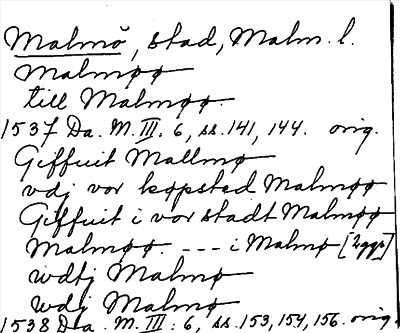 Malmö, stad, Malm. l.
Malmøø
till Malmøø.
1537 Da. M. III. 6, ss. 141, 144. orig.
Giffuit Mallmø
vdj vor køpsted Malmøø
Giffuit i vor stadt Malmøø
Malmøø. --- i Malmø [2ggr]
wdtj Malmø
wdj Malmø
1538 Da. M. III: 6, ss. 153, 154, 156. orig.